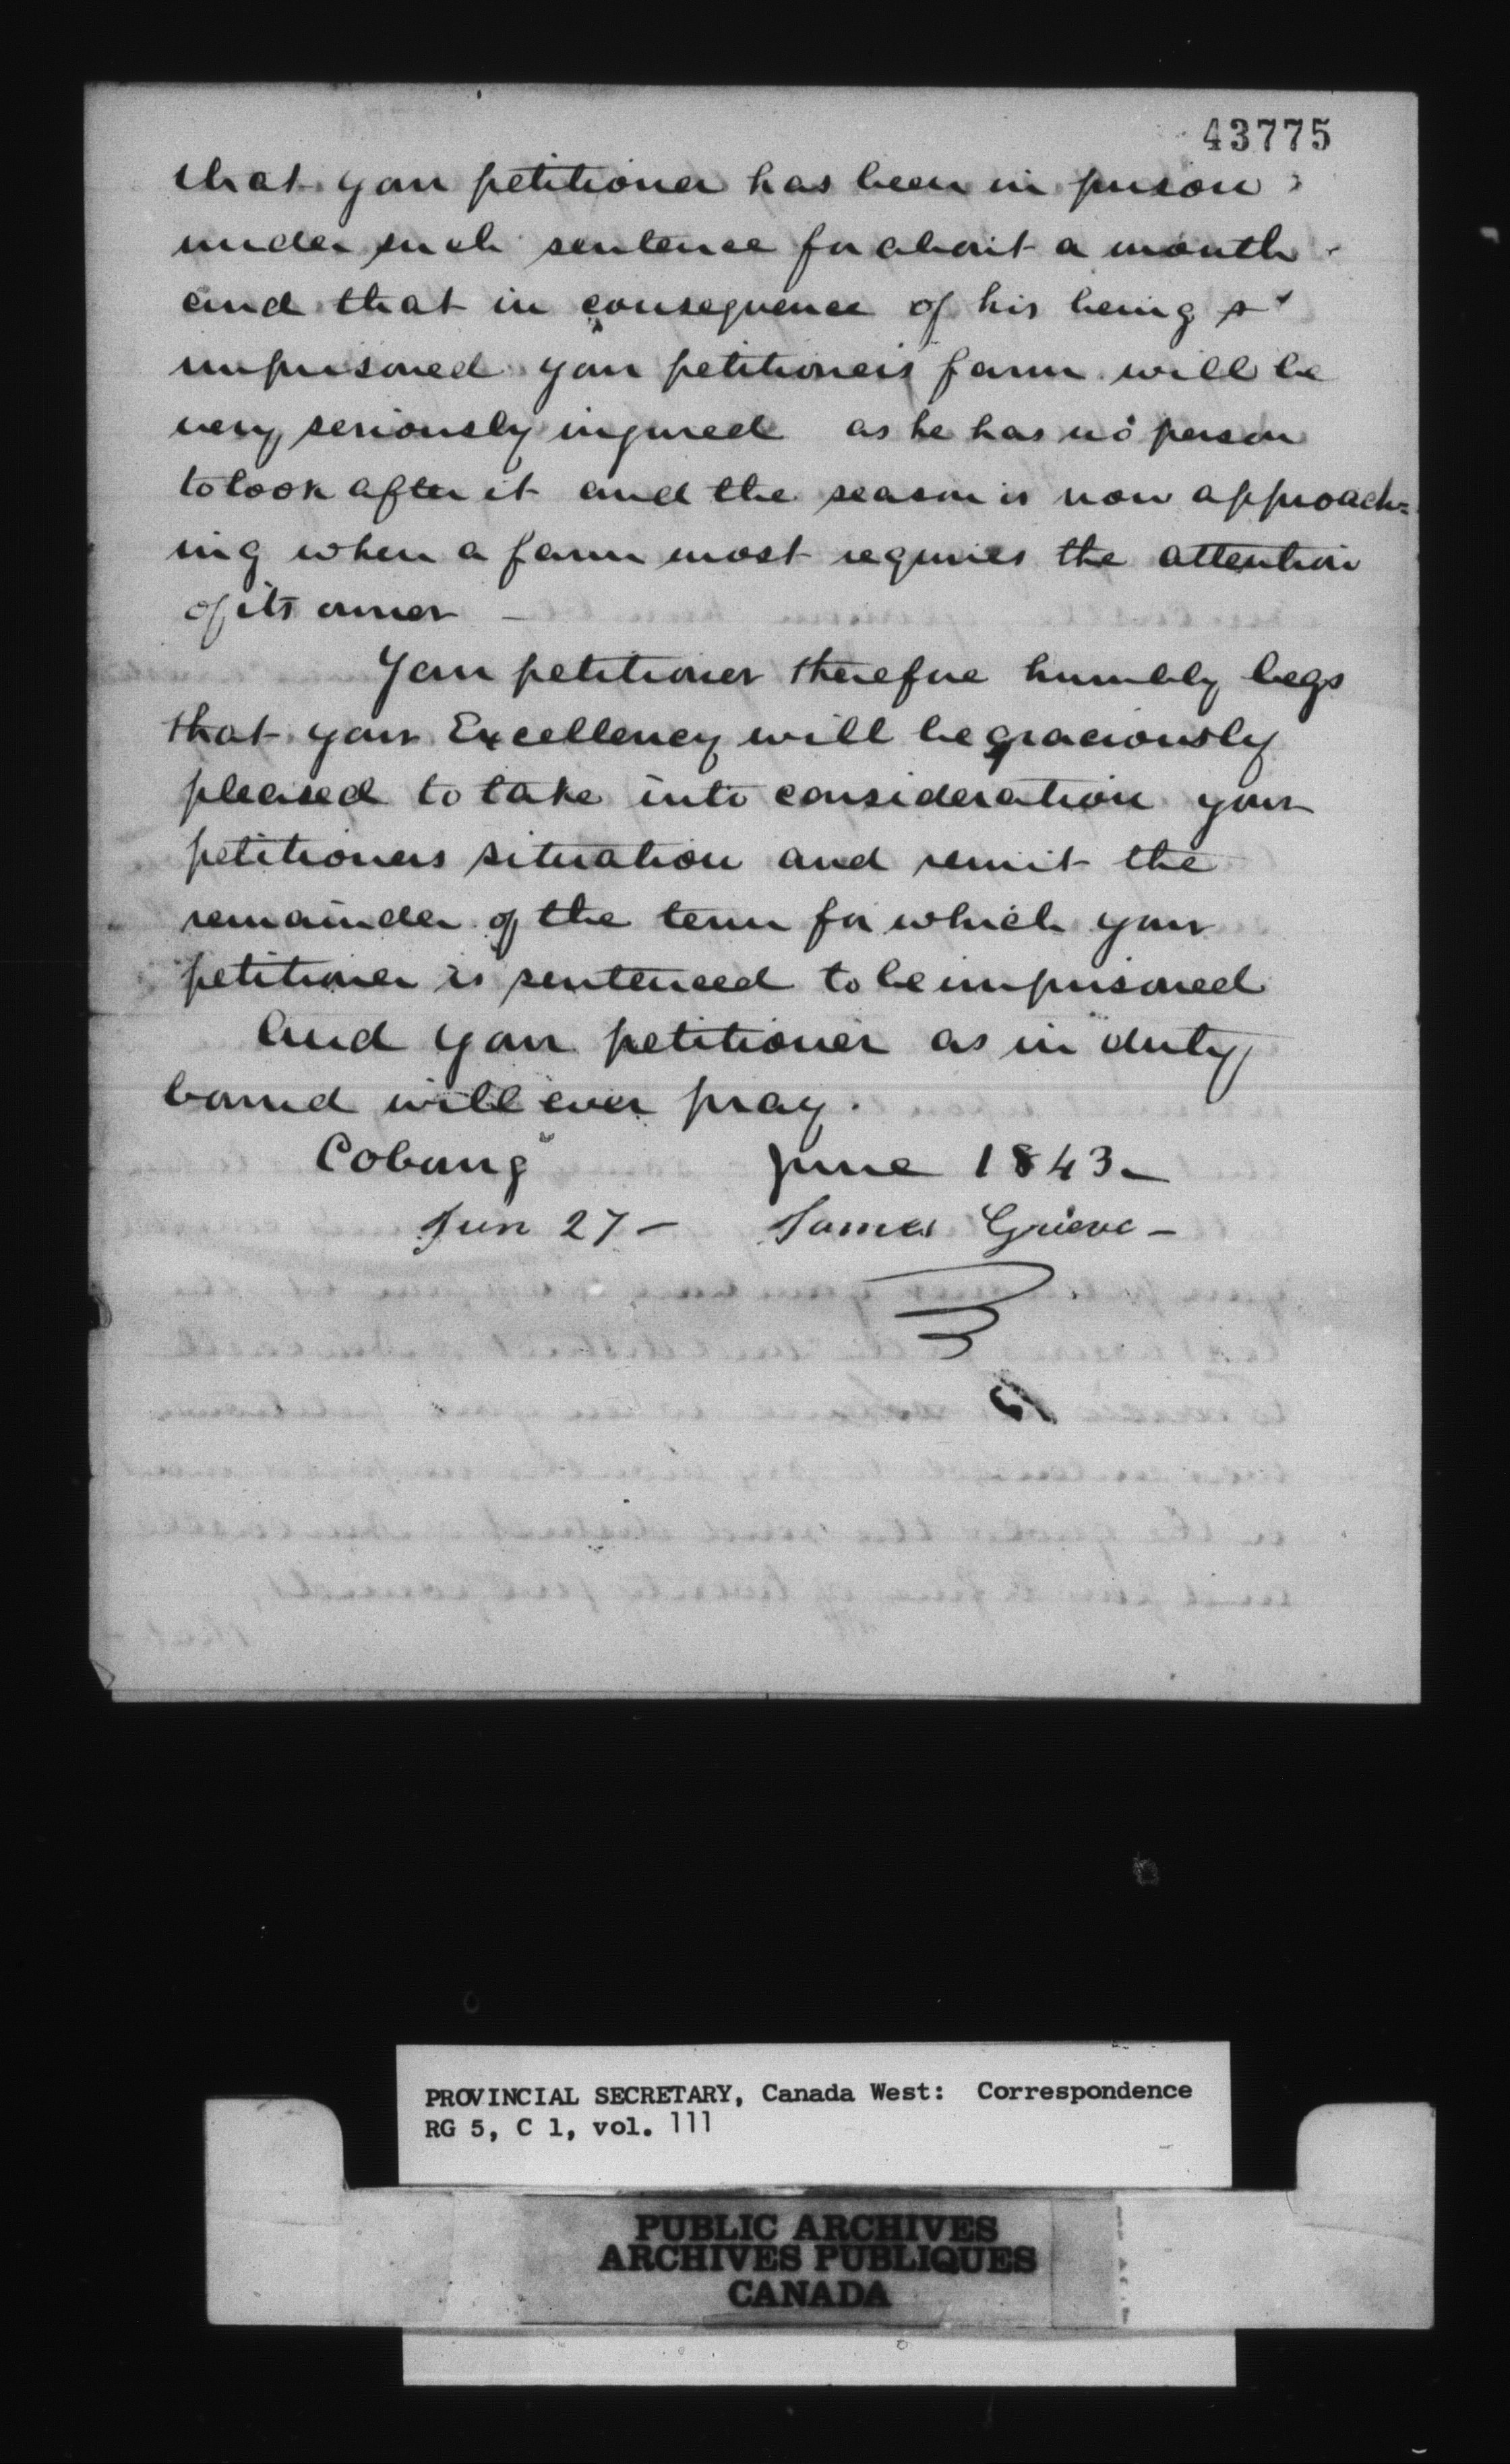 43775
that your petitioner has been in prison
under such sentence for about a month
and that in consequence of his being so
imprisoned your petitioners farm will be
very seriously injured as he has no person
to look after it and the season is now approach=
ing when a farm most requires the attention
of its owner —
Your petitioner therefore humbly begs
that your Excellency will be graciously
pleased to take into consideration your
petitioners situation and remit the
remainder of the term for which your
petitioner is sentenced to be imprisoned
And your petitioner as in duty
bound will ever pray.
Cobourg June 1843—
Jun 27 — James Grieve —
PROVINCIAL SECRETARY, Canada West: Correspondence
RG 5, C 1, vol. 111
PUBLIC ARCHIVES
ARCHIVES PUBLIQUES
CANADA